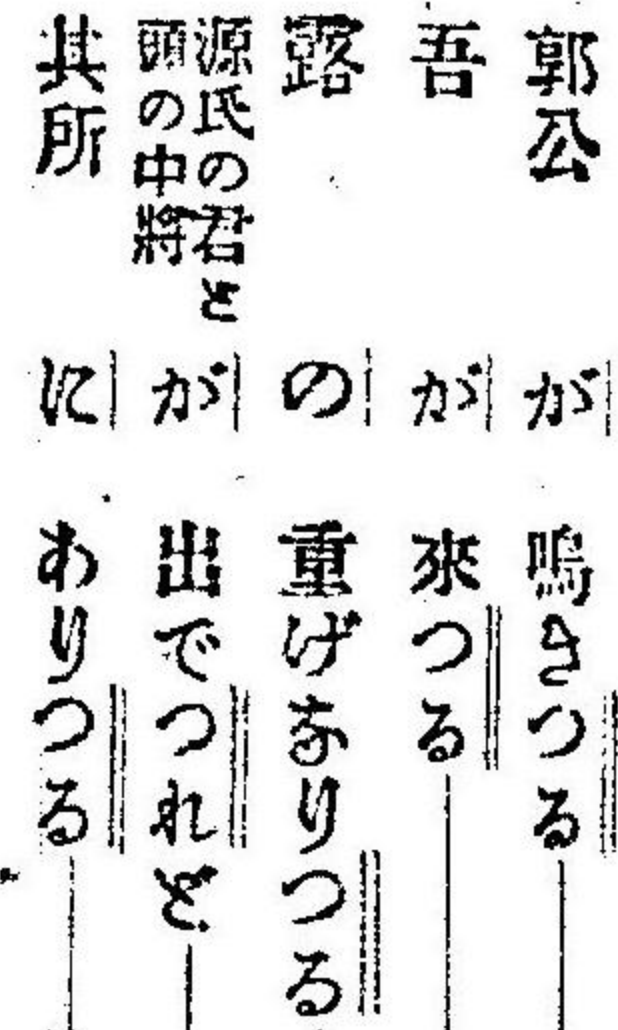 郭公が鳴きつる
吾が來つる
露の重げなりつる
源氏の君と
頭の中將が出でつれど
其所にありつる